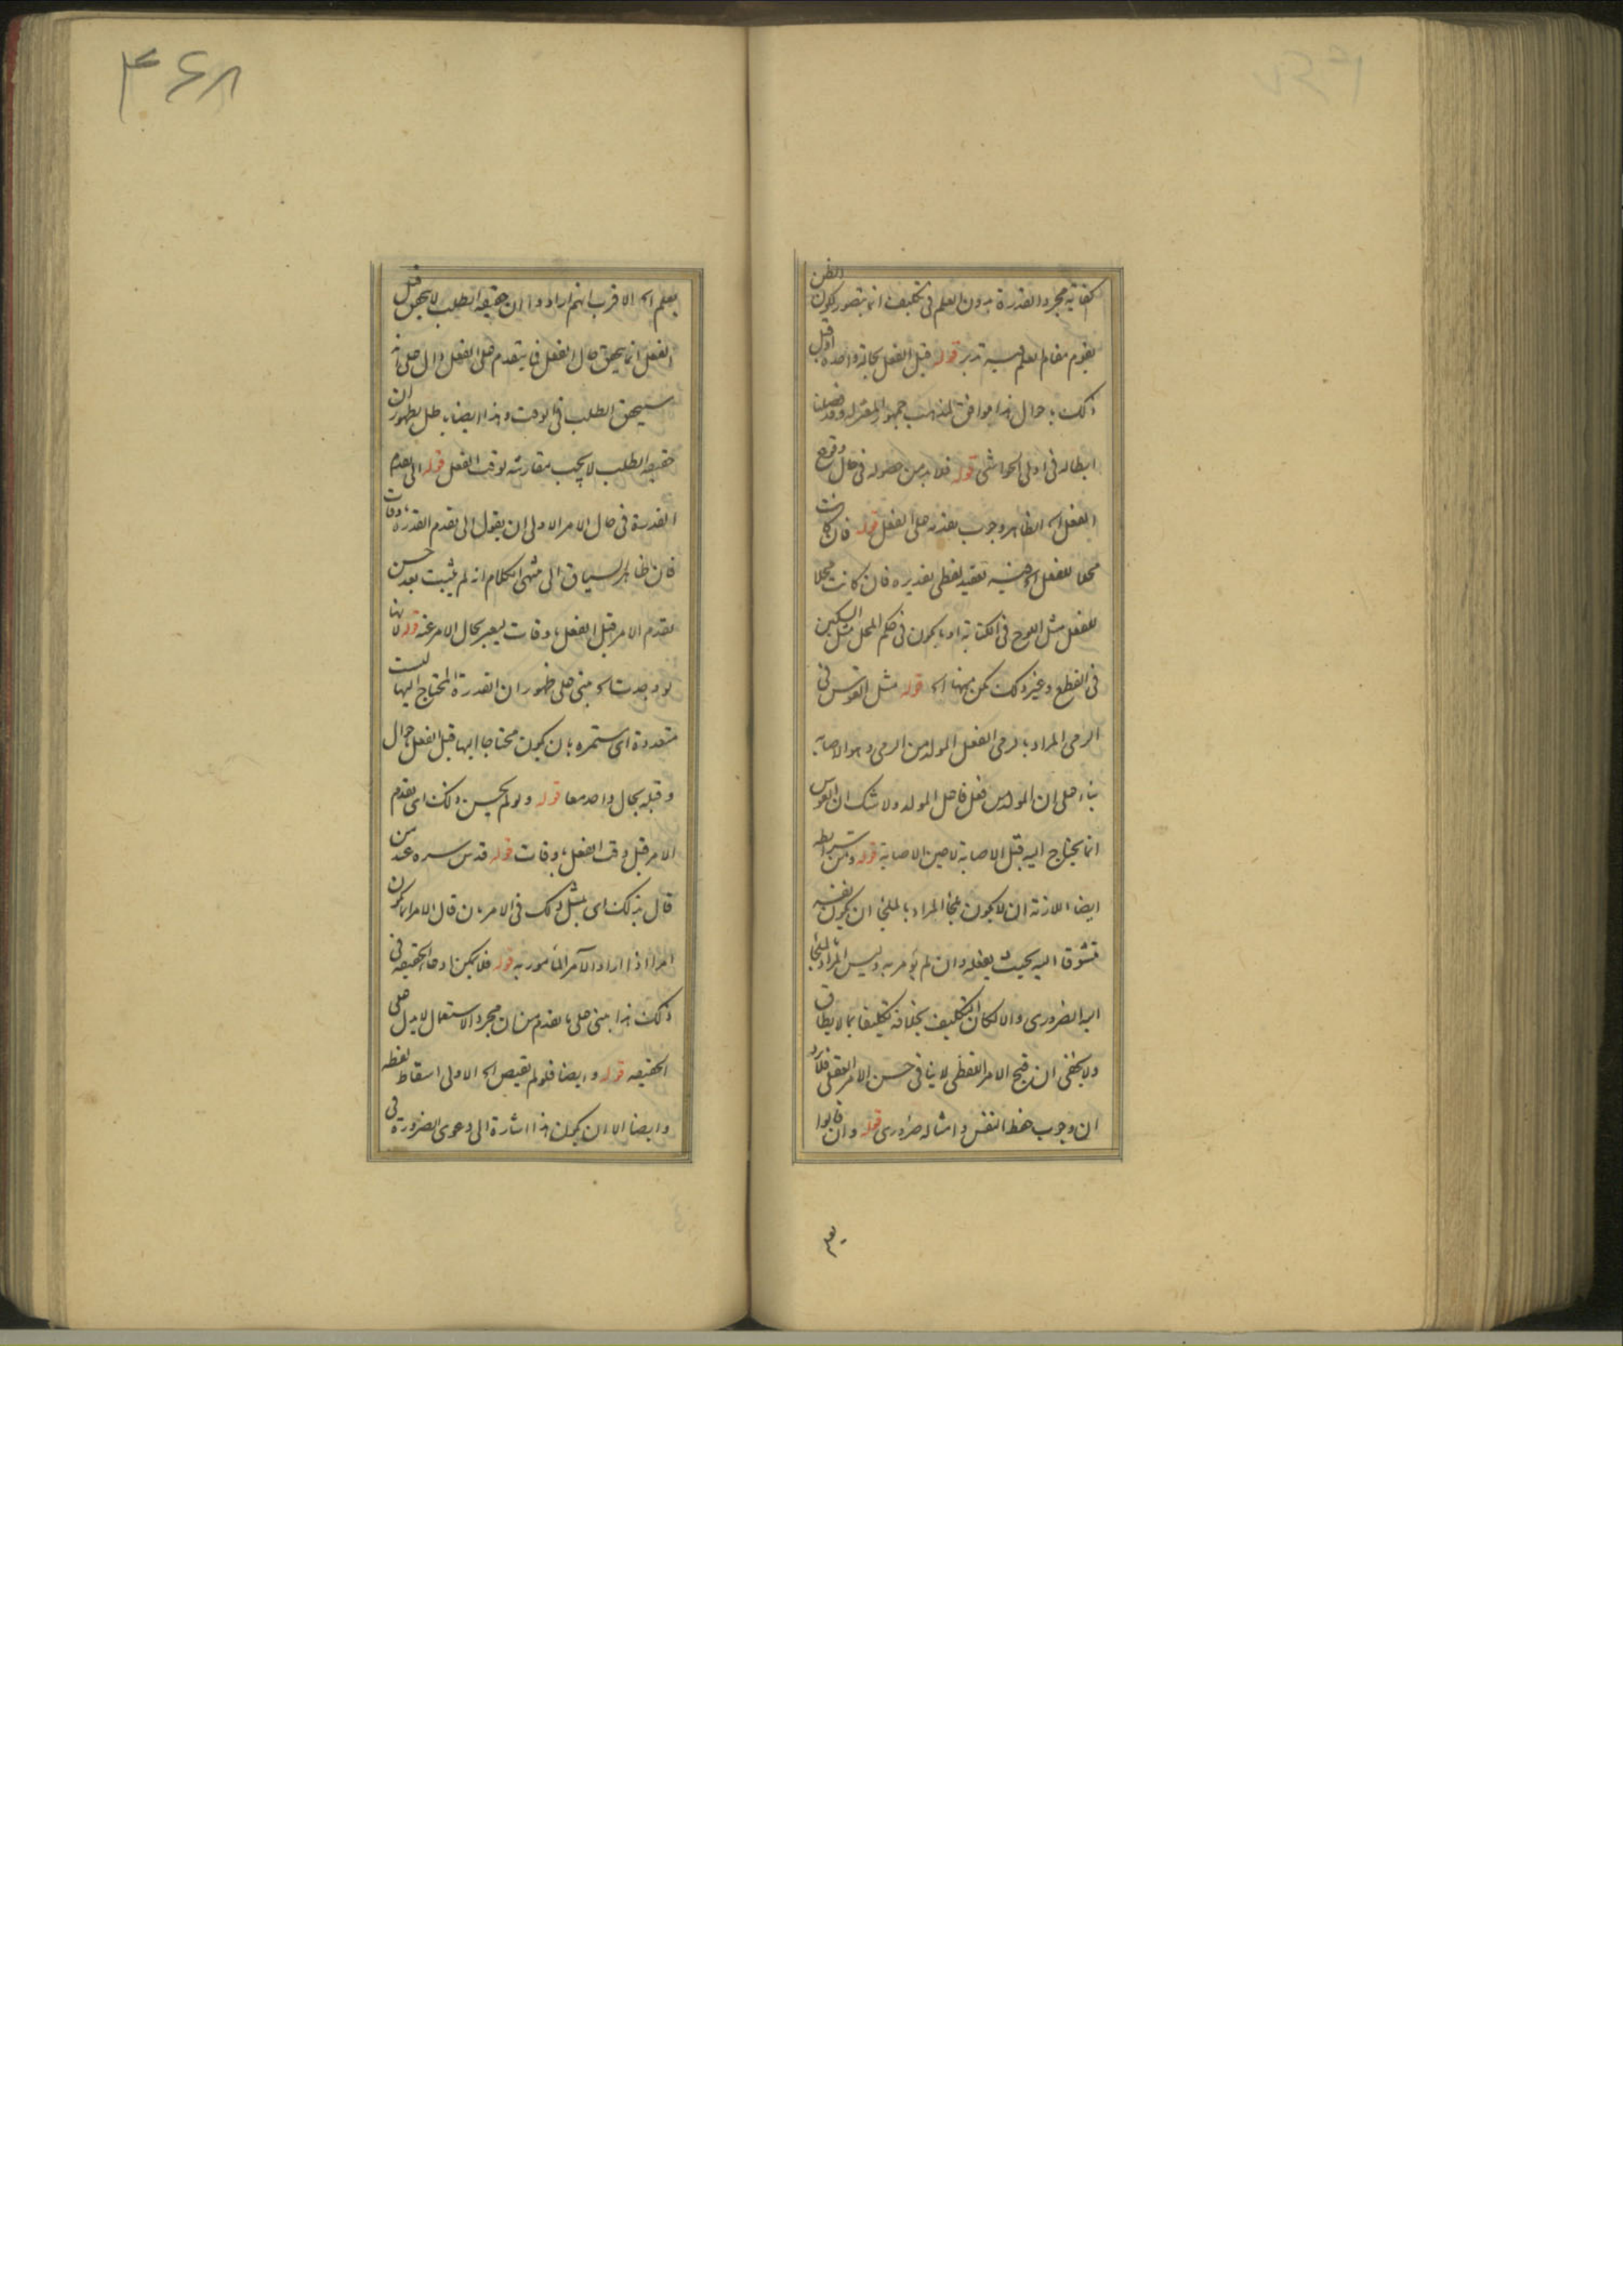 كفاية مجرد القدرة بدون العلم في تكليف انما يتصور لكون الظن
يقوم مقام العلم فيه تدبر قوله قبل الفعل بحالة واحدة او قبل
ذلك باحوال هذا موافق لمذهب جمهور المعتزلة وقد فصلنا
ابطاله في اولى الحواشي قوله فلا بد من حصوله في حال وقوع
الفعل اه الظاهر وجوب تقدمه على الفعل قوله فان كانت
محلا للفعل اه فيه تعقيد لفظي تقديره فان كانت محلا
للفعل مثل اللوح في الكتابة او ما يكون في حكم المحل مثل السكين
في القطع وغير ذلك لكن منها اه قوله مثل القوس في
الرمي المراد بالرمي الفعل المولد من الرمي وهو الاصابة
بناء على ان المولد من فعل فاعل المولد ولا شك ان القوس
انما يحتاج اليه قبل الاصابة لا حين الاصابة قوله ومن شرايطه
ايضا اللازمة ان لا يكون ملجأ المراد بالملجأ ان يكون بنفسه
متشوقا اليه بحيث يفعله وان لم يؤمر به وليس المراد الملجأ
اليه الضروري والا لكان التكليف بخلافه تكليفا بما لا يطاق
ولا يخفى ان قبح الامر اللفظي لا ينافي حسن الامر العقلي فلا يرد
ان وجوب حفظ النفس وامثاله ضروري قوله وان قالوا
۴۶۸
يعلم اه الاقرب انهم ارادوا ان حقيقة الطلب لا يتحقق قبل
الفعل انما يتحقق حال الفعل فما يتقدم على الفعل دال على انه
سيتحقق الطلب في الوقت وهذا ايضا باطل لظهور ان
حقيقة الطلب لا يجب مقارنته لوقت الفعل قوله الى تقدم
القدرة في حال الامر الاولى ان يقول الى تقدم القدرة باوقات
فان ظاهر السياق الى منتهى الكلام انه لم يثبت بعد حسن
تقدم الامر قبل الفعل باوقات ليعبر بحال الامر عنه قوله لانها
لو وجدت اه مبنى على ظهور ان القدرة المحتاج اليها ليست
متعددة اى مستمرة بان يكون محتاجا اليها قبل الفعل باحوال
وقبله بحال واحد معا قوله ولو لم يحسن ذلك اى تقدم
الامر قبل وقت الفعل باوقات قوله قدس سره عند من
قال بذلك اى بمثل ذلك في الامر بان قال الامر انما يكون
امرا اذا اراد الآمر المأمور به قوله فلا يمكن ادعاء الحقيقة في
ذلك هذا مبنى على ما تقدم من ان مجرد الاستعمال لا يدل على
الحقيقة قوله وايضا فلو لم يقتض اه الاولى اسقاط لفظة
وايضا الا ان يكون هذا اشارة الى دعوى الضرورة في